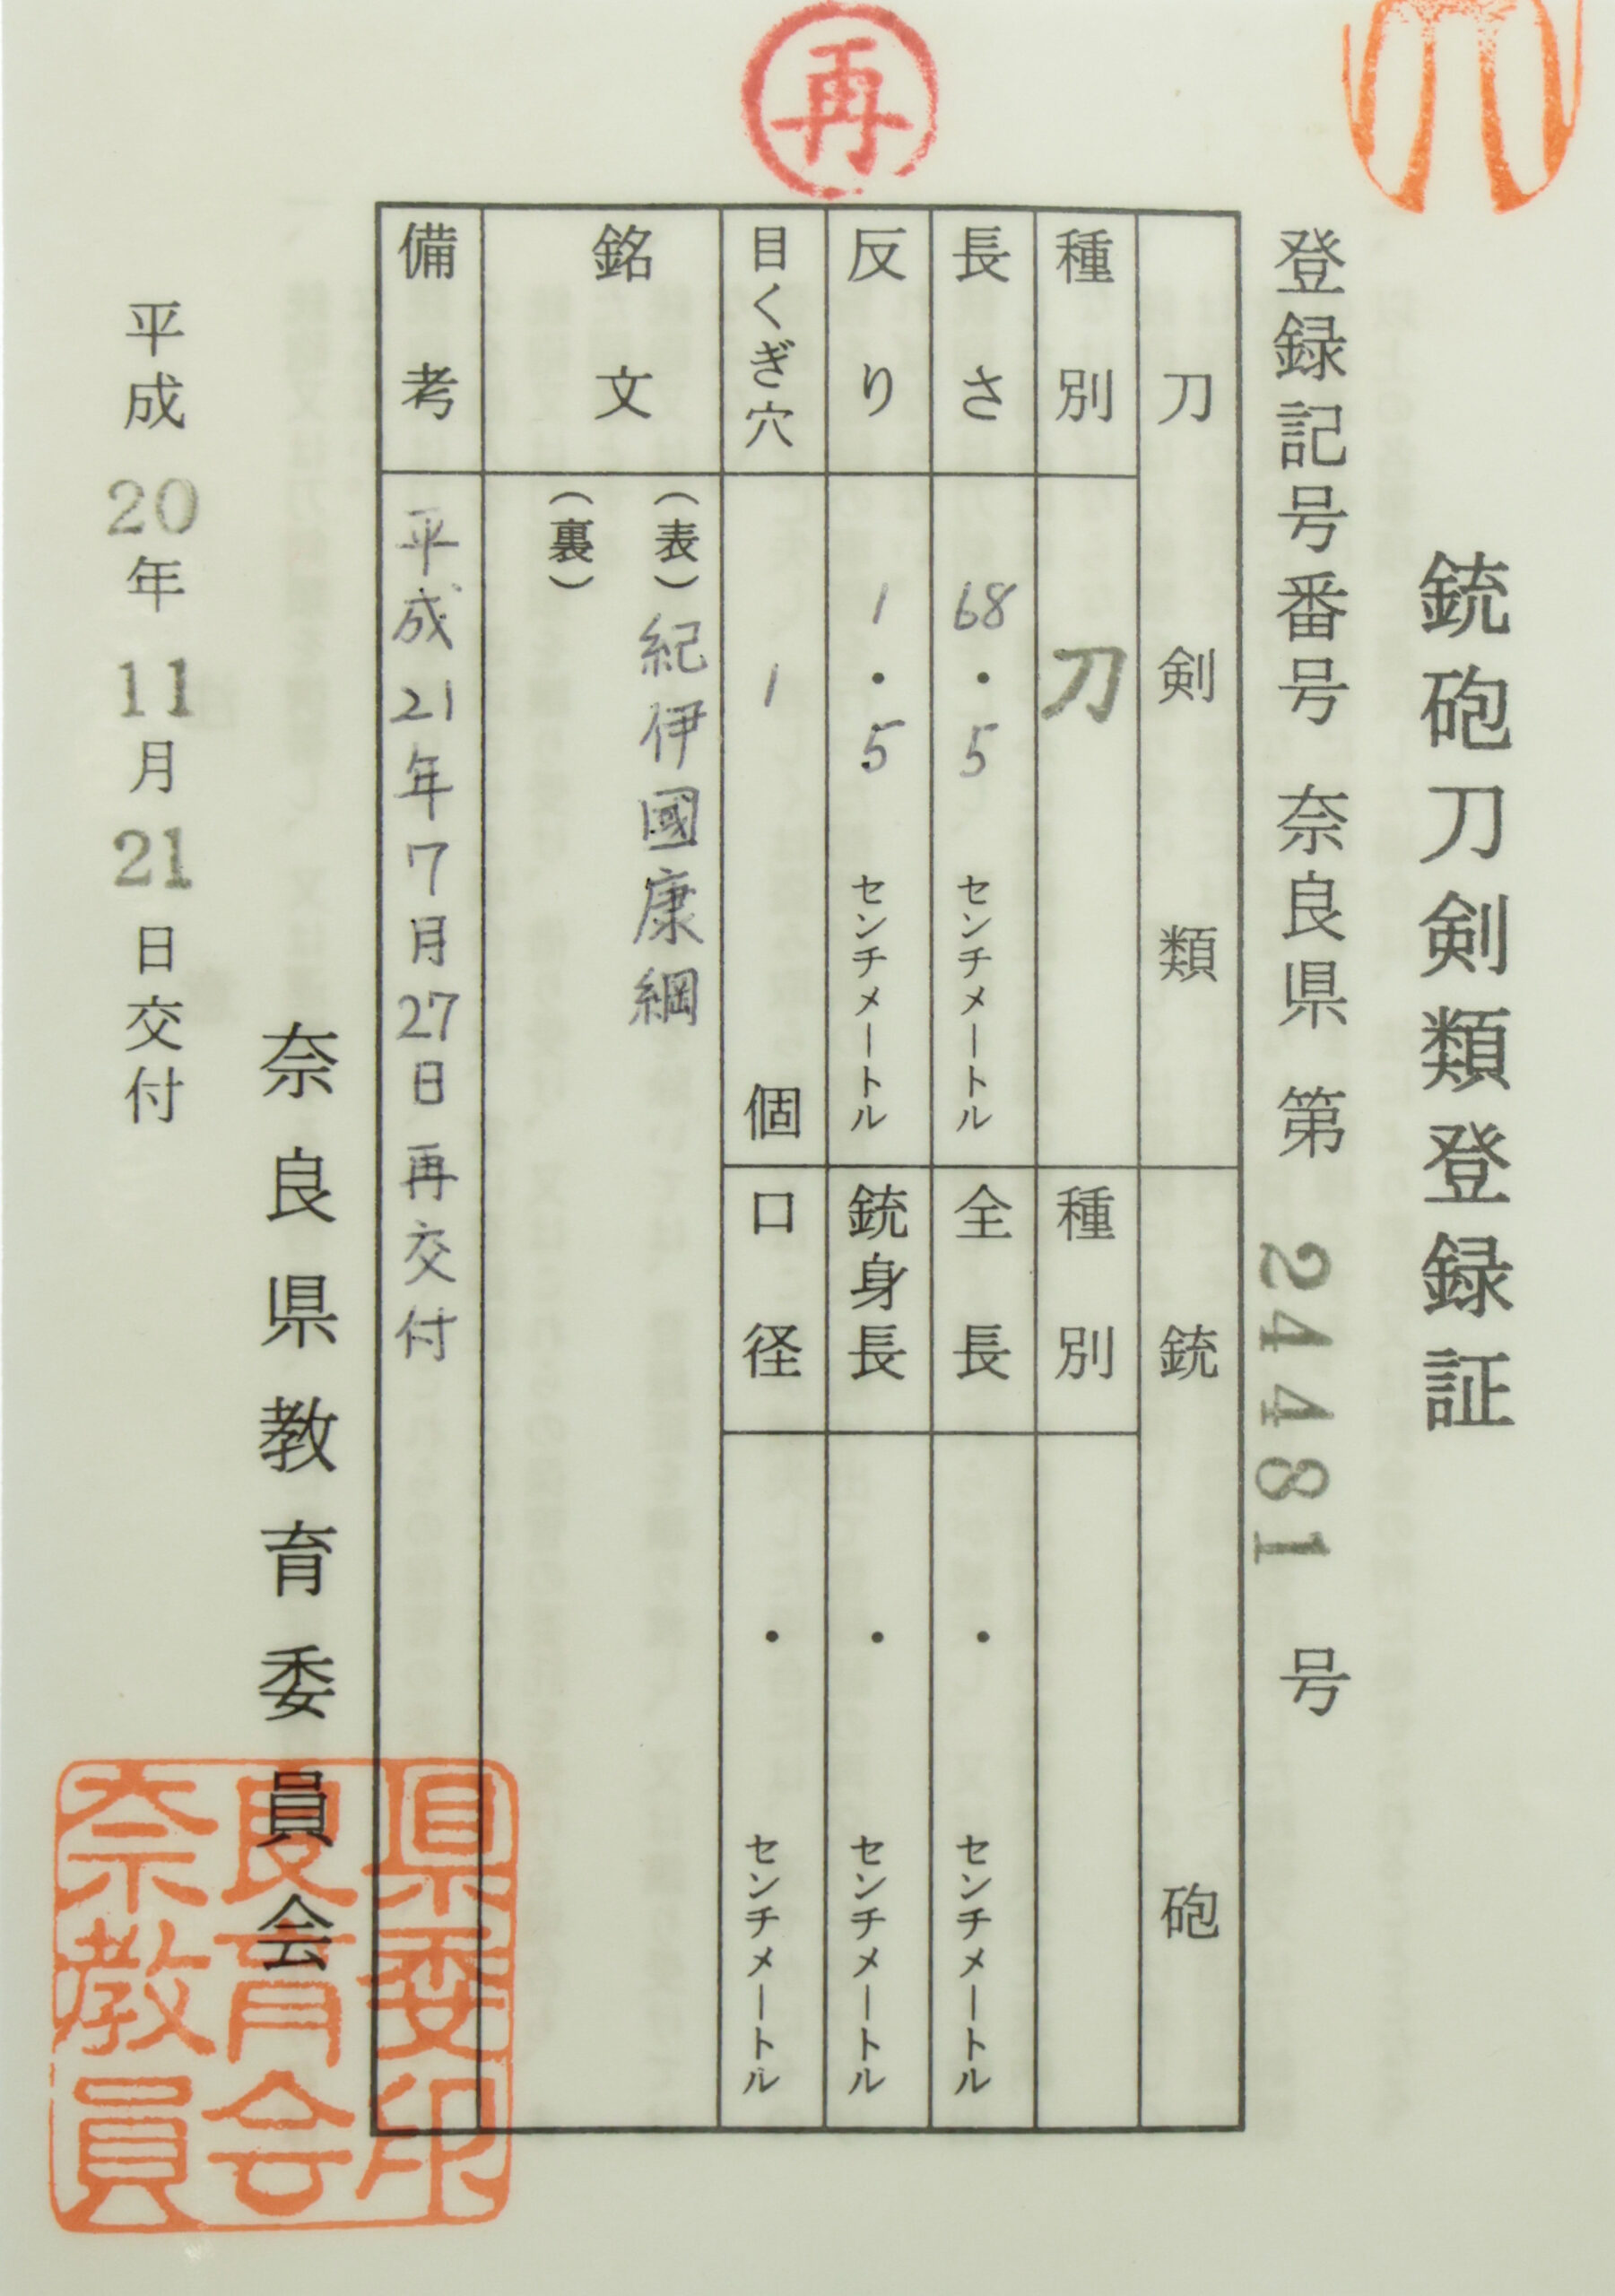 銃砲刀剣類登録証
登録記号番号 奈良県 第 24481 号
刀剣類
種別 刀
長さ 68・5 センチメートル
反り 1・5 センチメートル
目くぎ穴 1 個
銃砲
種別
全長 ・ センチメートル
銃身長 ・ センチメートル
口径 ・ センチメートル
銘文
(表)紀伊國康綱
(裏)
備考 平成21年7月27日再交付
奈良県教育委員会
平成20年11月21日交付
再
奈良県
教育委
員会印